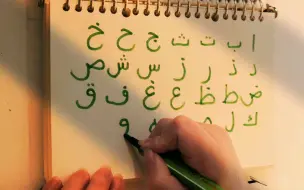 ا ب ت ث ج ح خ
د ذ ر ز س ش ص
ض ط ظ ع غ ف ق
ك ل و